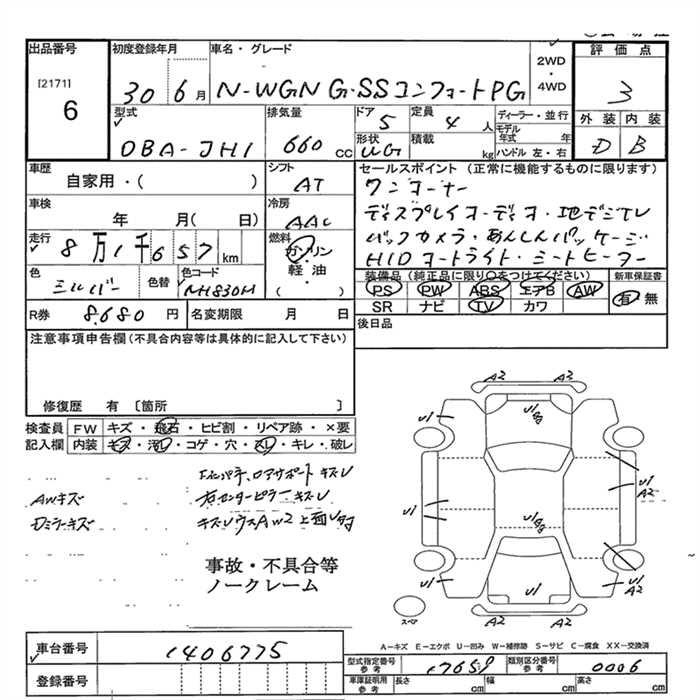 出品番号 初度登録年月 車名・グレード 評価点
[2171] 6
30 6月 N-WGN G・SSコンフォートPG
2WD・4WD
3
型式 排気量 ドア 定員 ディーラー・並行 外装 内装
DBA-JH1 660cc 5 4人 モデル年式 年 D B
形状 UG 積載 kg ハンドル 左・右
車歴 シフト セールスポイント (正常に機能するものに限ります)
自家用・( ) AT ワンオーナー
車検 冷房 ディスプレイオーディオ・地デジTV
年 月( 日) AAC バックカメラ・あんしんパッケージ
走行 8万1千657km 燃料 ガソリン HIDオートライト・シートヒーター
色 色替 色コード 軽・油 装備品 (純正品に限り○をつけてください) 新車保証書
シルバー NH830M ( ) PS PW ABS エアB AW 有・無
SR ナビ TV カワ
R券 8,680円 名変期限 月 日 後日品
注意事項申告欄(不具合内容等は具体的に記入して下さい)
修復歴 有 〔箇所 〕
検査員 FW キズ・飛石・ヒビ割・リペア跡・×要
記入欄 内装 キズ・汚レ・コゲ・穴・スレ・キレ・破レ
AWキズ
ロアサポートキズ
右センターピラーキズ
ドアミラーキズ
事故・不具合等
ノークレーム
A2 A2
U1 U1
U1 A2
U1
U1 U1 U1 A2
スペア
A-キズ E-エクボ U-凹み W-補修跡 S-サビ C-腐食 XX-交換済
車台番号 1406775
型式指定番号 参考 17659 類別区分番号 参考 0006
登録番号
車庫証明用 参考 長さ cm 幅 cm 高さ cm